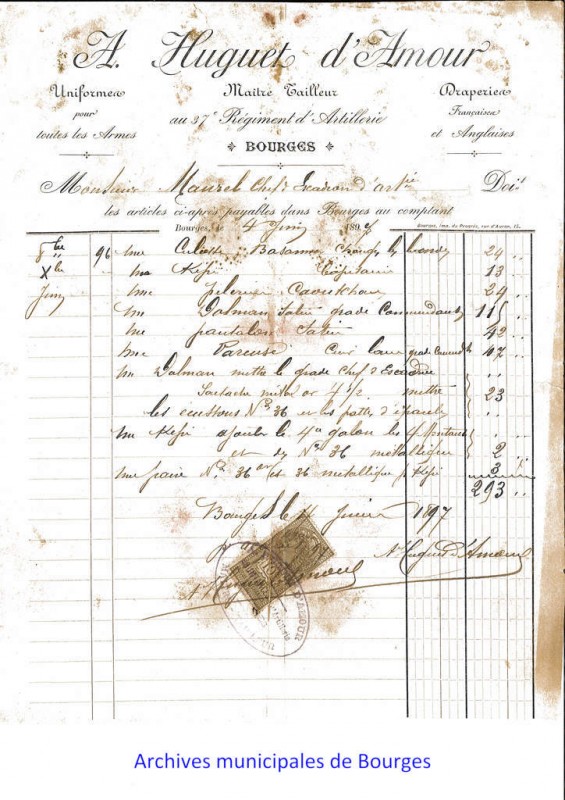 A. Huguet d'Amour
Uniformes pour toutes les Armes
Maître Tailleur
au 37e Régiment d'Artillerie
BOURGES
Draperies
Françaises
et Anglaises
Monsieur Maurel Chef d' Escadron d'artie Doit
les articles ci-après payables dans Bourges au comptant
Bourges, le 4 Juin 1897
8bre 96 une Culotte Basanne 24
Xbre un Kepi Capitaine 13
Juin une Caoutchou 24
un Dolman Satin grade Commandant 115
un pantalon Satin 42
une Vareuse grade Comm 47
un Dolman mettre le grade Chef d'Escadron
or 4 1/2 mettre 23
les écussons No 36 et les pattes d'épaule
un Kepi ajouter le 4e galon les 4 Montants
et des Nos 36 métallique 2
une paire Nos 36 et 36 métallique p Kepi 3
293
Bourges le 4 Juin 1897
A Huguet d'Amour
Archives municipales de Bourges